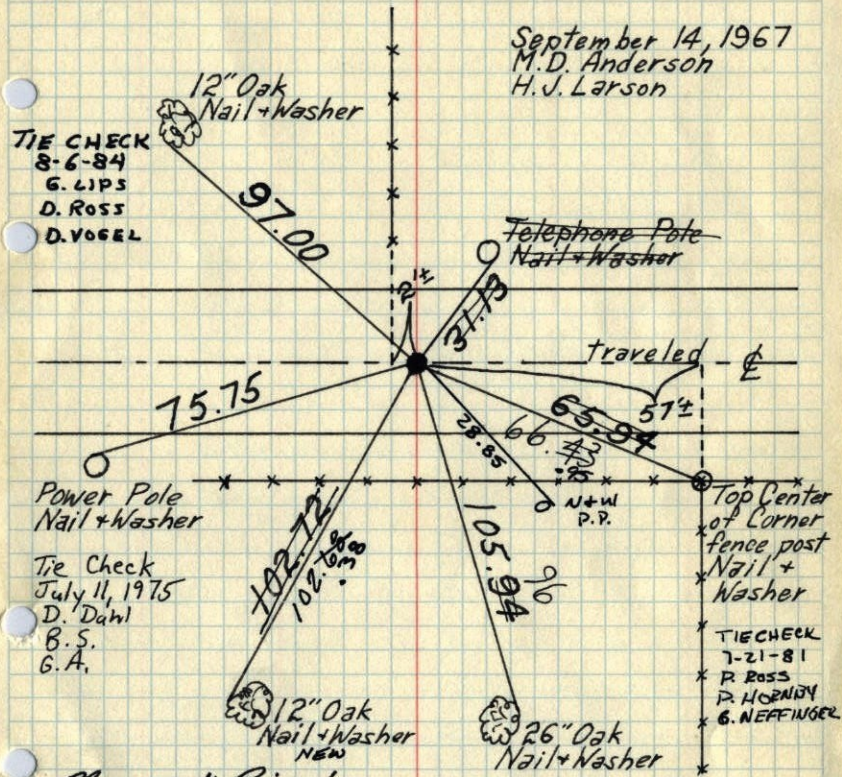 September 14, 1967
M.D. Anderson
H.J. Larson
12" Oak
Nail + Washer
TIE CHECK
8-6-84
G. LIPS
D. ROSS
D. VOGEL
97.00
Telephone Pole
Nail + Washer
2±
31.13
traveled
℄
57'±
75.75
65.94
66.43
.95
28.85
N+W
P.P.
Power Pole
Nail + Washer
Top Center
of Corner
fence post
Nail +
Washer
Tie Check
July 11, 1975
D. Dahl
B.S.
G.A.
102.72
102.
105.94
96
TIE CHECK
7-21-81
D. ROSS
D. HORNBY
G. NEFFINGER
12" Oak
Nail + Washer
NEW
26" Oak
Nail + Washer